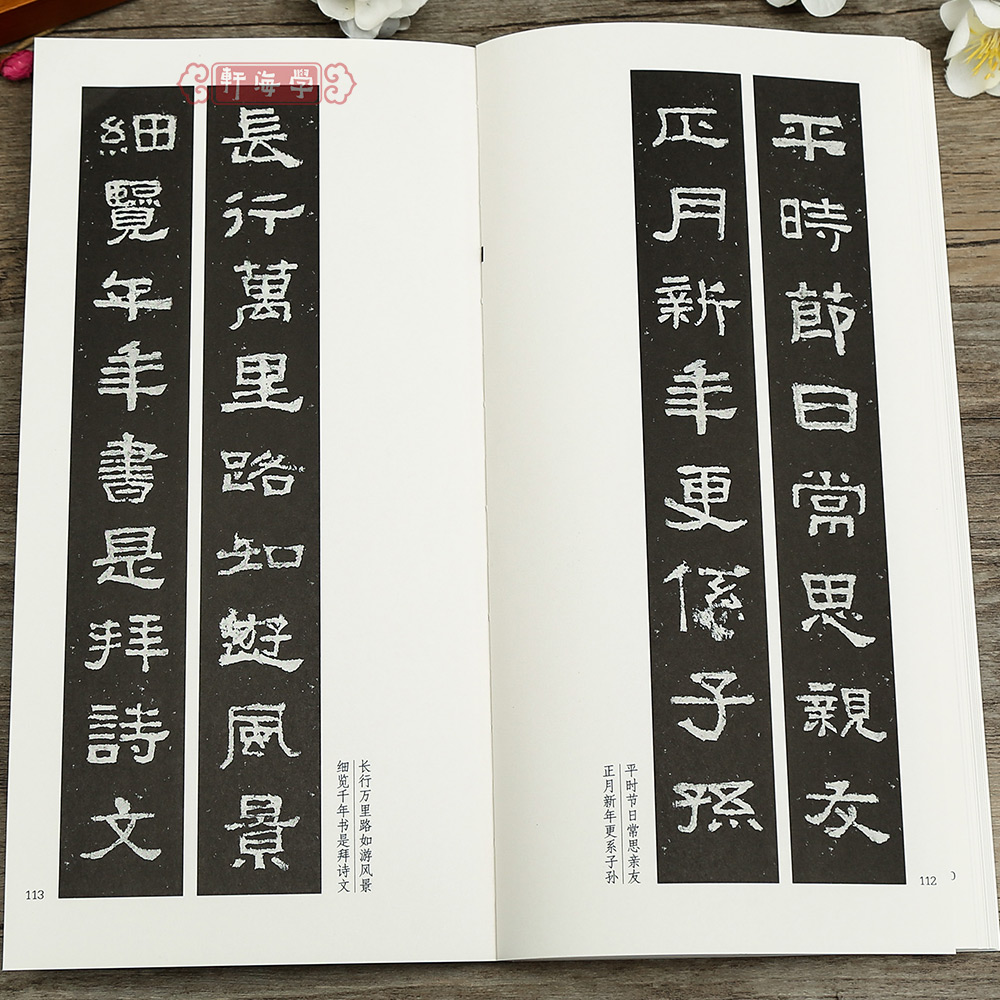 學海軒
平時節日常思親友
正月新年更係子孫
平时节日常思亲友
正月新年更系子孙
112
長行萬里路知遊風景
細覽年年書是拜詩文
长行万里路如游风景
细览千年书是拜诗文
113